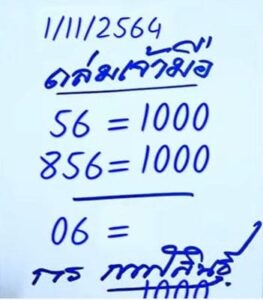 1/11/2564
ถล่มเจ้ามือ
56 = 1000
856 = 1000
06 =
กาฬสินธุ์
1000